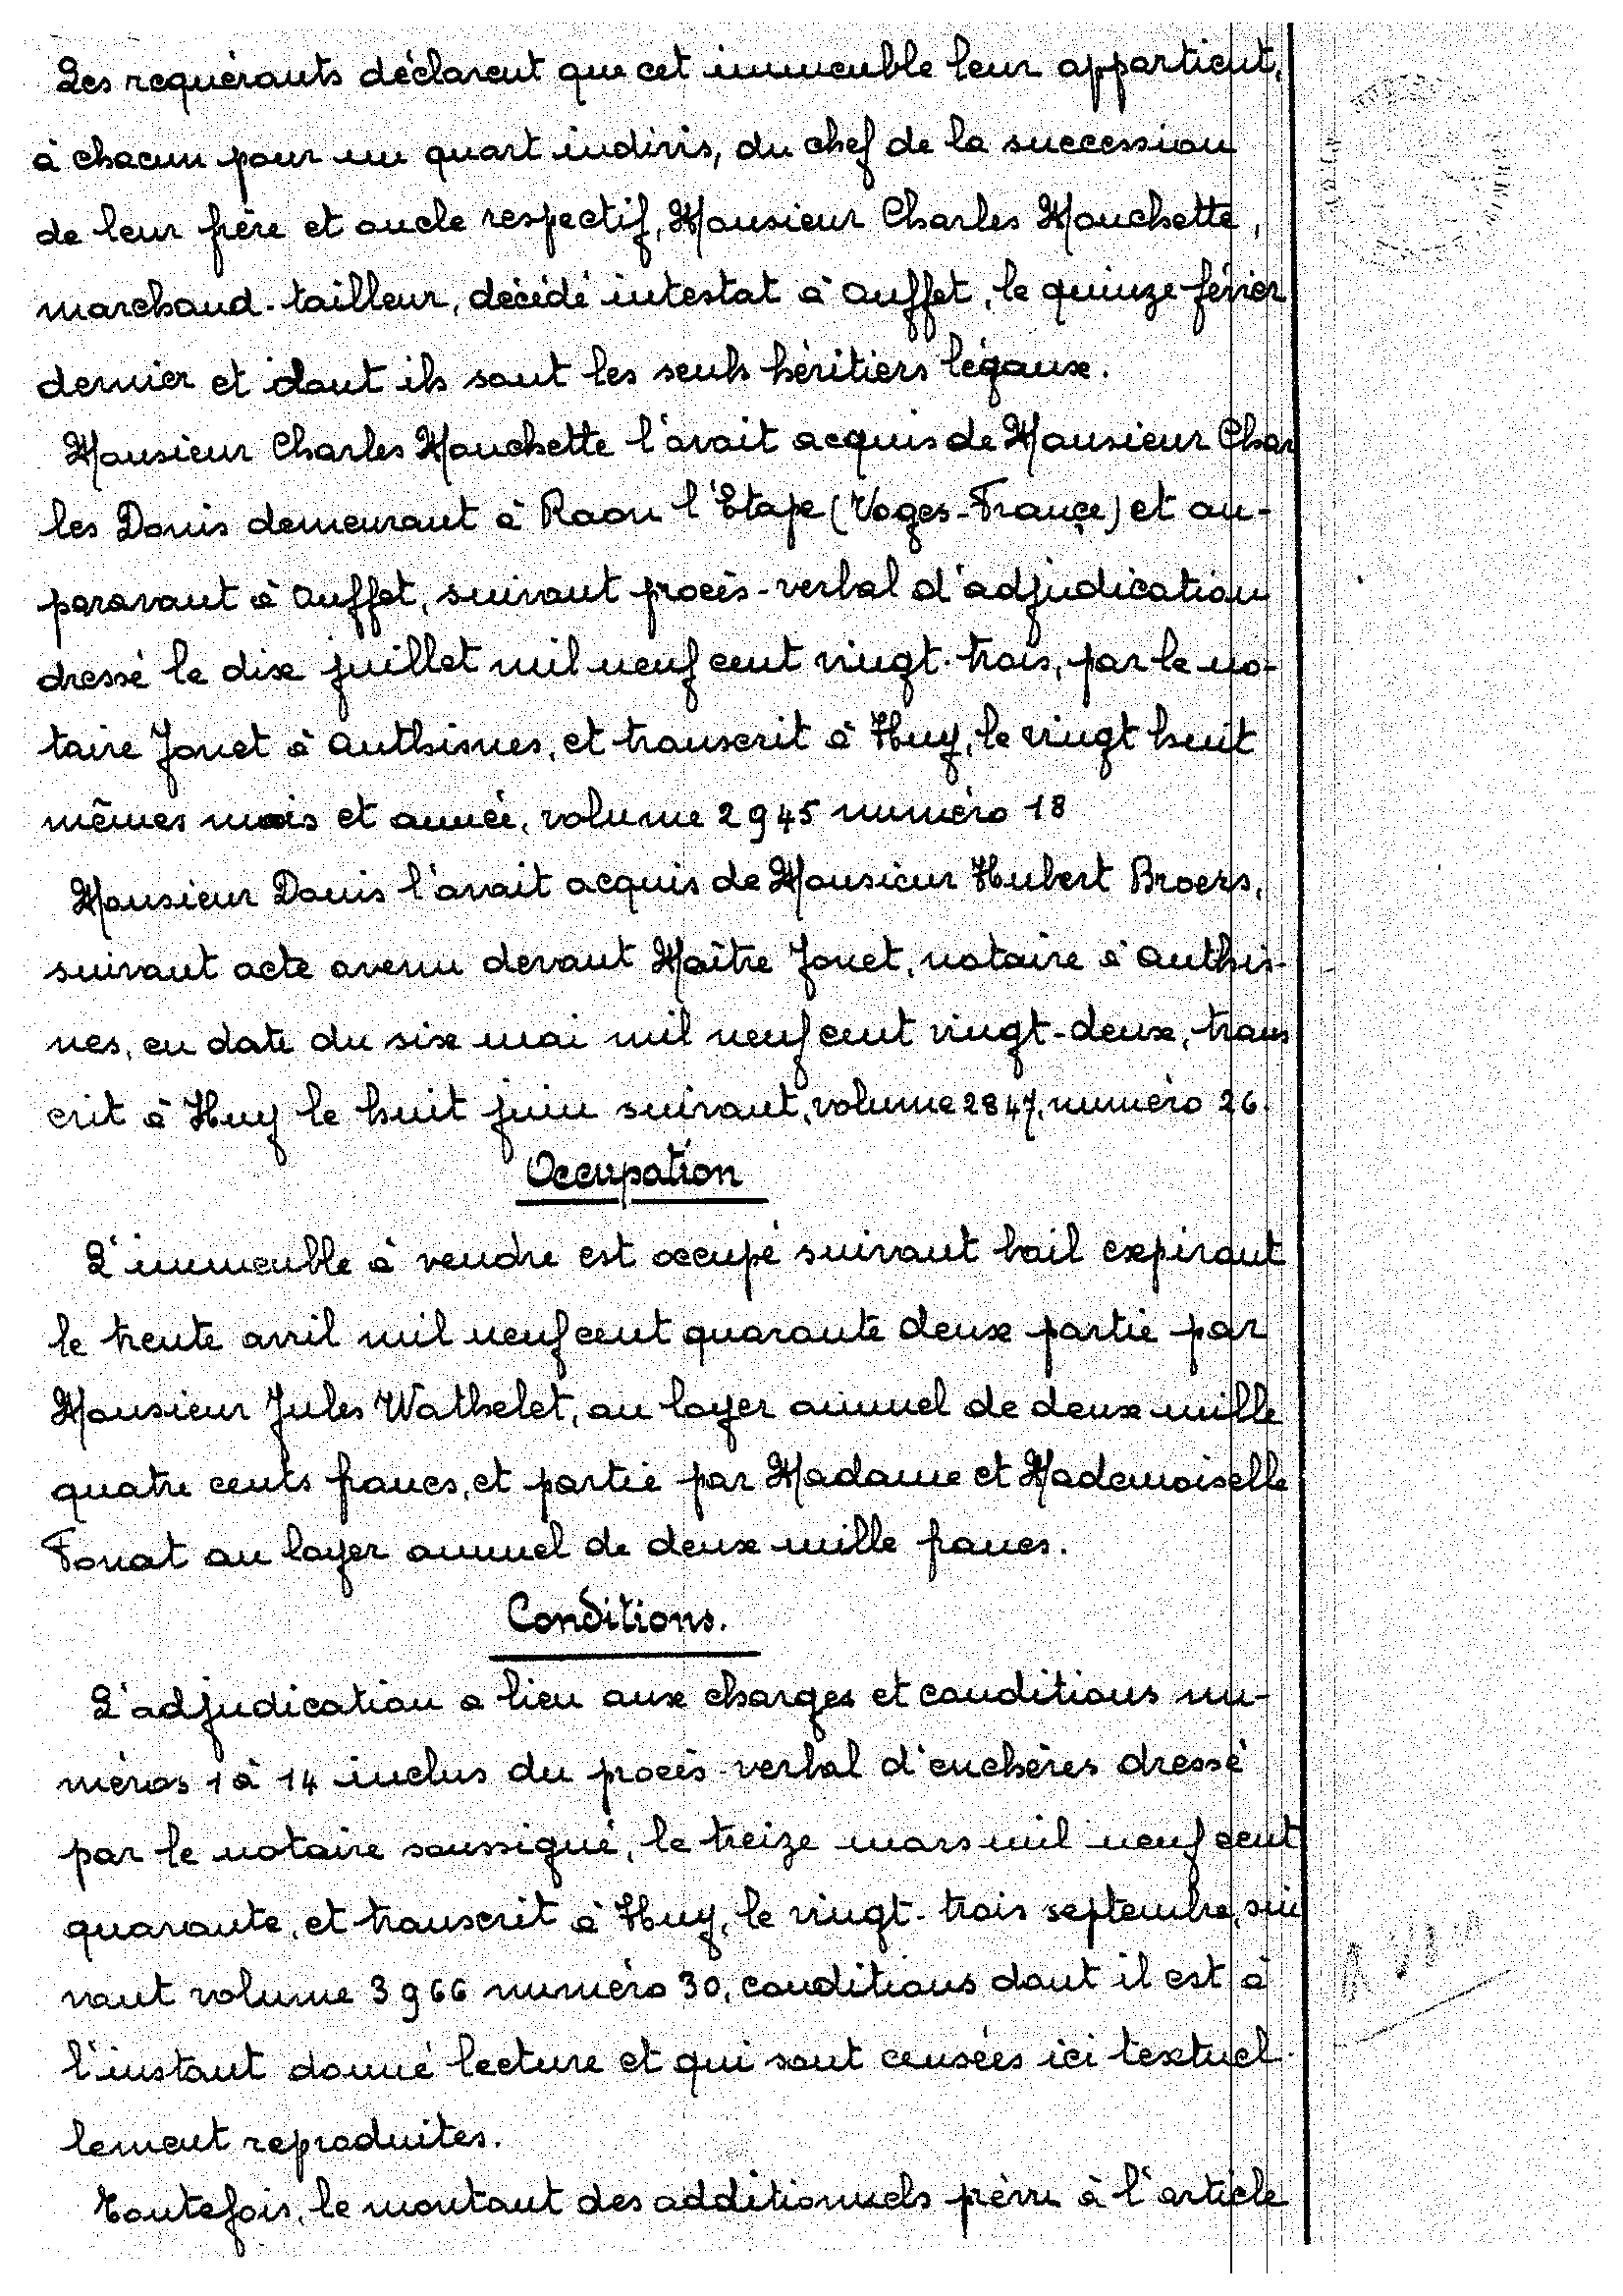 Les requérants déclarent que cet immeuble leur appartient,
à chacun pour un quart indivis, du chef de la succession
de leur frère et oncle respectif, Monsieur Charles Mouchette,
marchand-tailleur, décédé intestat à Ouffet, le quinze février
dernier et dont ils sont les seuls héritiers légaux.
Monsieur Charles Mouchette l'avait acquis de Monsieur Char
les Donis demeurant à Raon l'Etape (Voges-France) et au-
paravant à Ouffet, suivant procès-verbal d'adjudication
dressé le dix juillet mil neuf cent vingt-trois, par le no-
taire Jonet à Anthisnes, et transcrit à Huy, le vingt huit
mêmes mois et année, volume 2945 numéro 18
Monsieur Donis l'avait acquis de Monsieur Hubert Broers,
suivant acte avenu devant Maître Jonet, notaire à Anthis-
nes, en date du six mai mil neuf cent vingt-deux, trans
crit à Huy le huit juin suivant, volume 2847, numéro 26.
Occupation
L'immeuble à vendre est occupé suivant bail expirant
le trente avril mil neuf cent quarante deux partie par
Monsieur Jules Wathelet, au loyer annuel de deux mille
quatre cents francs, et partie par Madame et Mademoiselle
Fonat au loyer annuel de deux mille francs.
Conditions.
L'adjudication a lieu aux charges et conditions nu-
méros 1 à 14 inclus du procès-verbal d'enchères dressé
par le notaire soussigné, le treize mars mil neuf cent
quarante, et transcrit à Huy, le vingt-trois septembre, sui
vant volume 3966 numéro 30, conditions dont il est à
l'instant donné lecture et qui sont censées ici textuel-
lement reproduites.
Toutefois, le montant des additionnels prévu à l'article